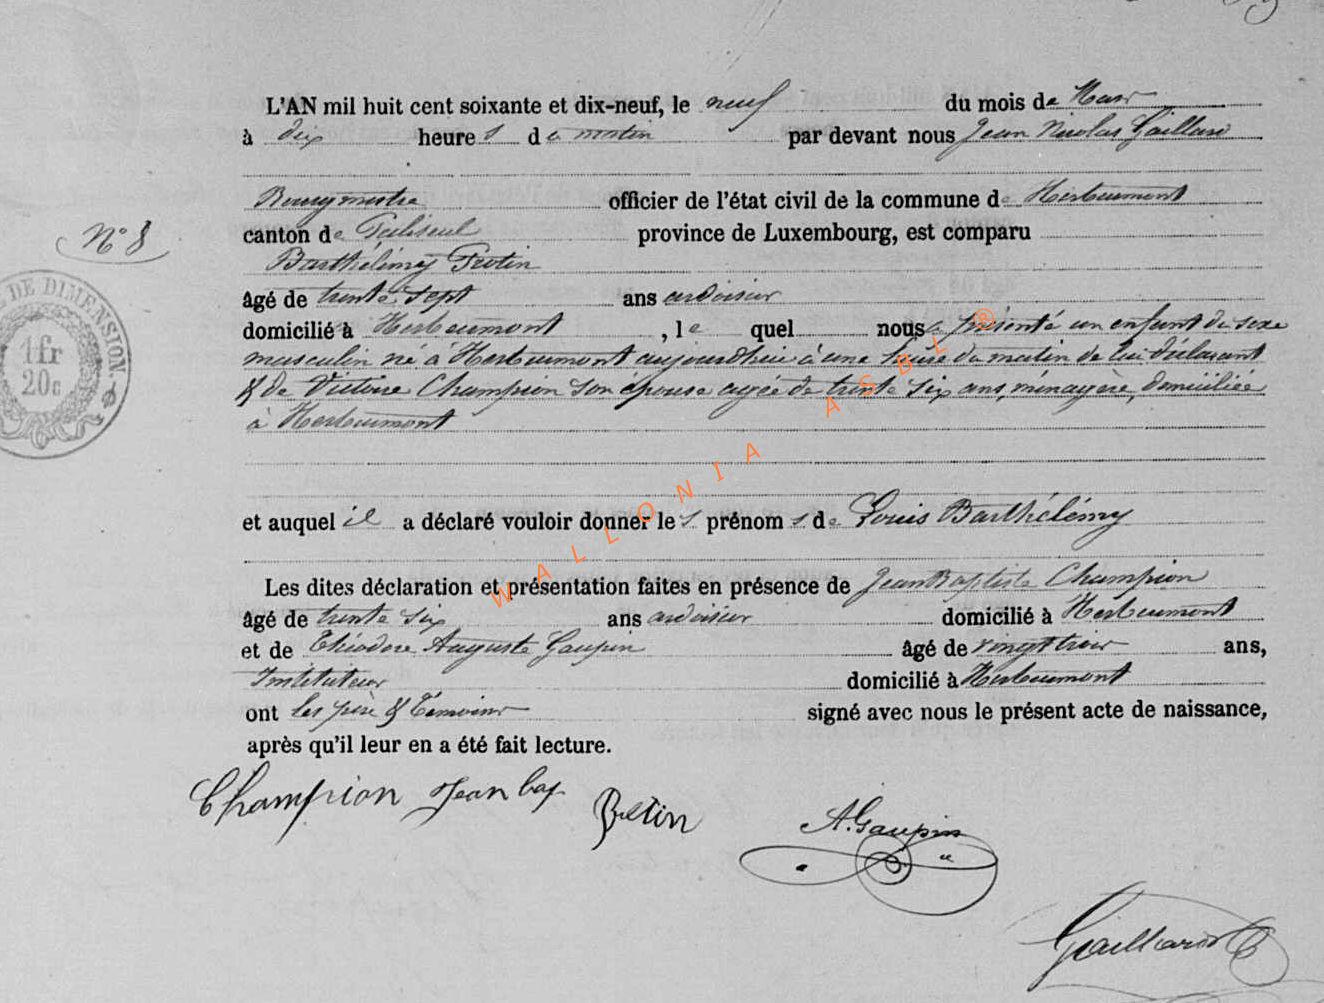 L'AN mil huit cent soixante et dix-neuf, le neuf du mois de Mars
à dix heures du matin par devant nous Jean Nicolas Gaillard
Bourgmestre officier de l'état civil de la commune de Herbeumont
N° 8
canton de Paliseul province de Luxembourg, est comparu
Barthélémy Protin
âgé de trente sept ans ardoisier
domicilié à Herbeumont, lequel nous a présenté un enfant du sexe
masculin né à Herbeumont aujourdhui à une heure du matin de lui déclarant
& de Victoire Champion son épouse agée de trente six ans, ménagère, domiciliée
à Herbeumont
et auquel il a déclaré vouloir donner les prénoms de Louis Barthélémy
Les dites déclaration et présentation faites en présence de Jean Baptiste Champion
âgé de trente six ans ardoisier domicilié à Herbeumont
et de Théodore Auguste Gaupin âgé de vingt trois ans,
Instituteur domicilié à Herbeumont
ont les père & témoins signé avec nous le présent acte de naissance,
après qu'il leur en a été fait lecture.
Champion Jean bap
A. Gaupin
Gaillard
DE DIMENSION
1 fr
20c
WALLONIA ASBL ®